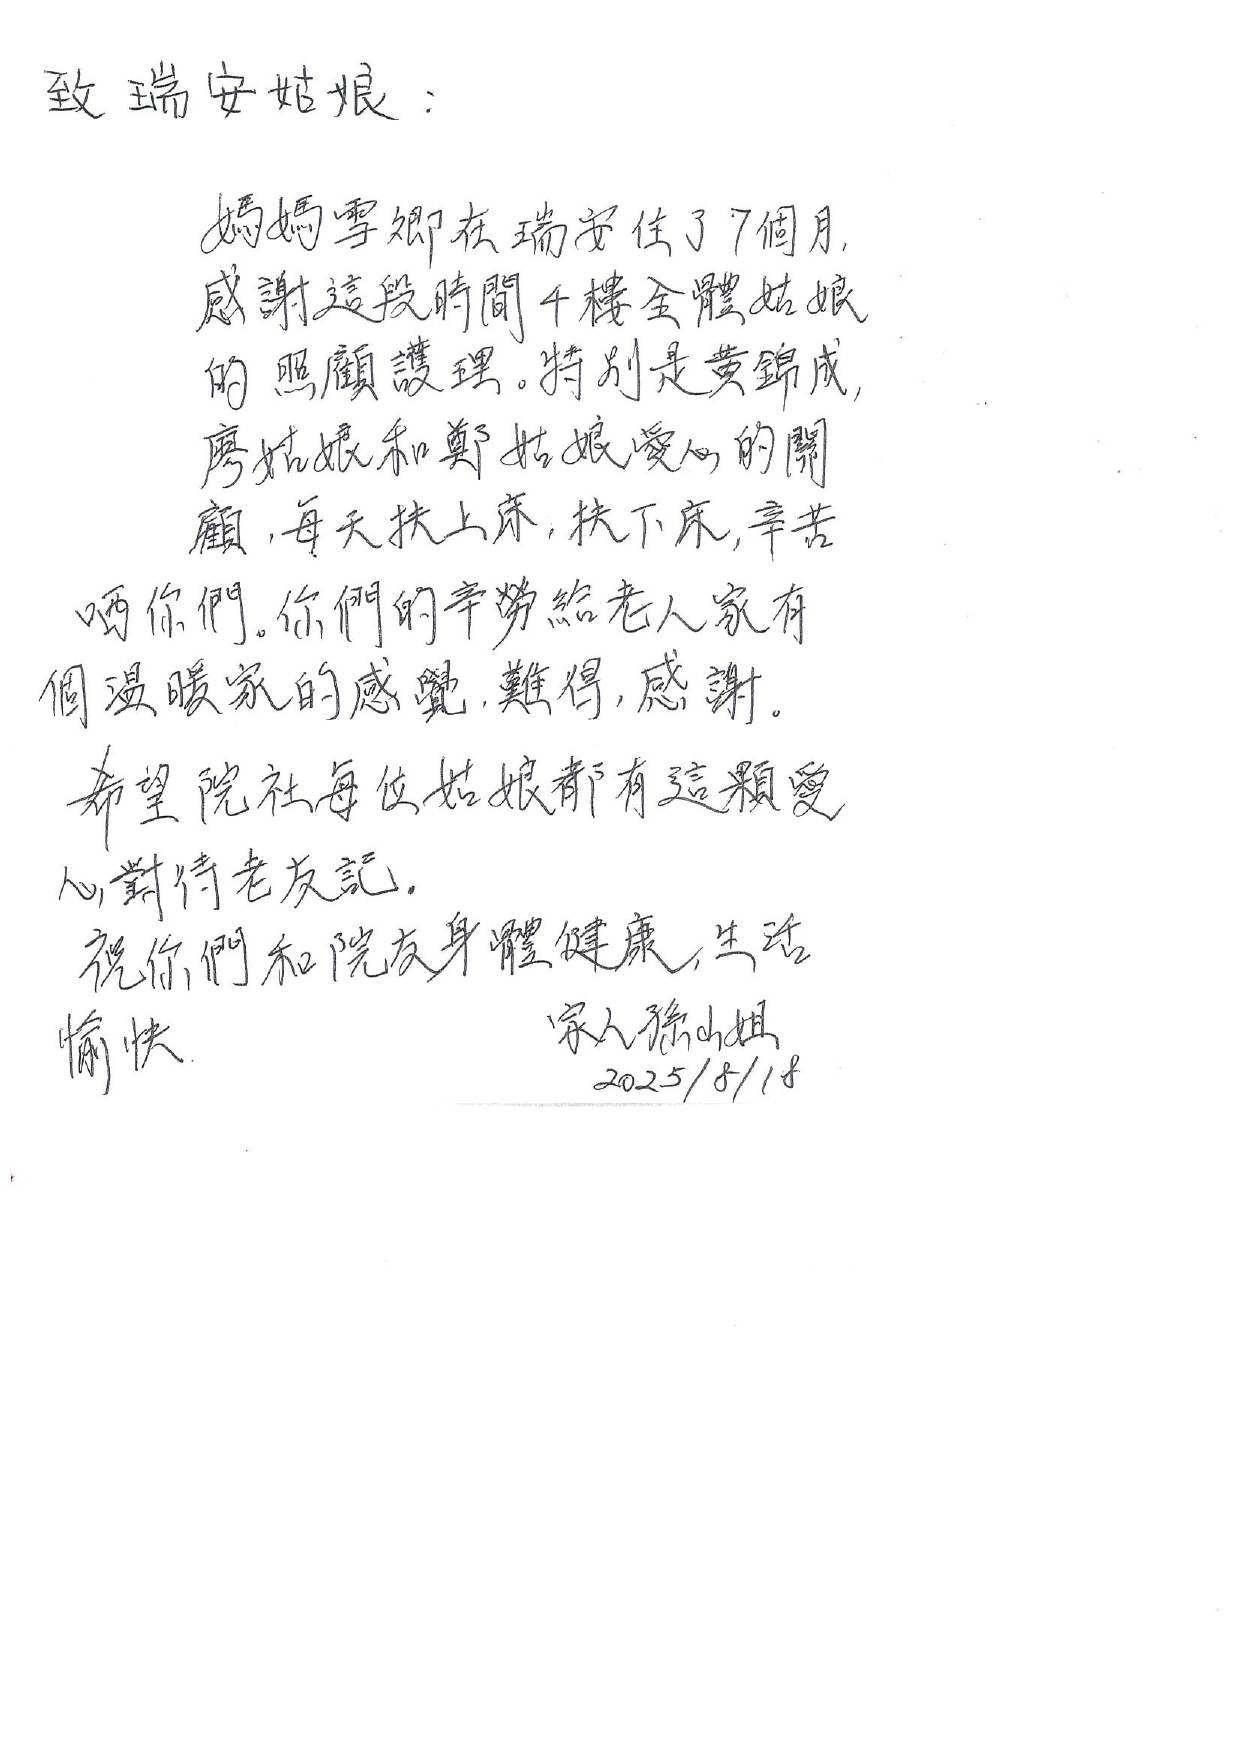 致瑞安姑娘：
媽媽雪卿在瑞安住了7個月,
感謝這段時間4樓全體姑娘
的照顧護理。特別是黄錦成,
廖姑娘和鄭姑娘愛心的關
顧,每天扶上床,扶下床,辛苦
哂你們。你們的辛勞給老人家有
個温暖家的感覺,難得,感謝。
希望院社每位姑娘都有這顆愛
心,對待老友記.
祝你們和院友身體健康,生活
愉快.
家人孫小姐
2025/8/18